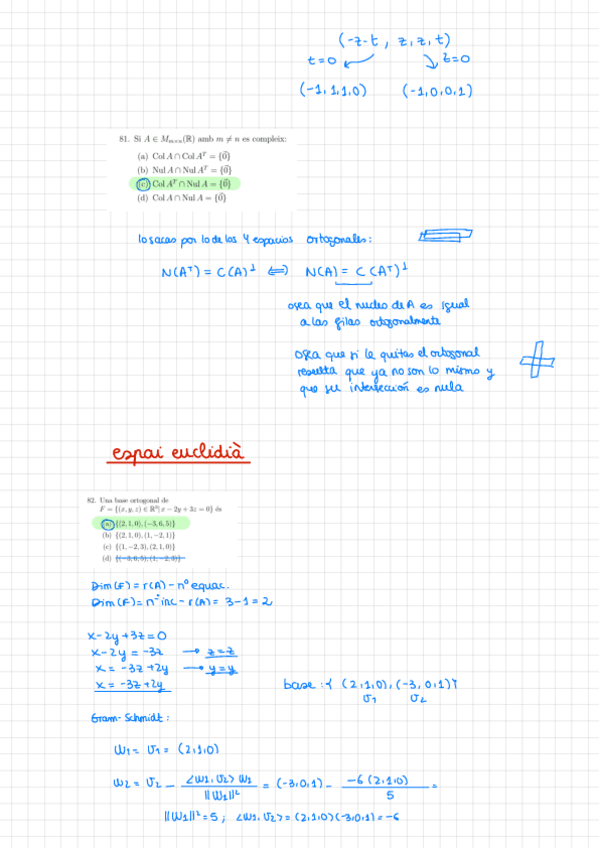 (-z-t, z, z, t)
t=0 z=0
(-1,1,1,0) (-1,0,0,1)
81. Si A ∈ M_{m×n}(ℝ) amb m ≠ n es compleix:
(a) Col A ∩ Col A^T = {0⃗}
(b) Nul A ∩ Nul A^T = {0⃗}
(c) Col A^T ∩ Nul A = {0⃗}
(d) Col A ∩ Nul A = {0⃗}
lo sacas por lo de los 4 espacios ortogonales:
N(A^T) = C(A)^⊥ ⟺ N(A) = C(A^T)^⊥
osea que el nucleo de A es igual
a las filas ortogonalmente
osea que si le quitas el ortogonal
resulta que ya no son lo mismo y
que su intersección es nula
espai euclidià
82. Una base ortogonal de
F = {(x, y, z) ∈ ℝ³| x − 2y + 3z = 0} és
(a) {(2, 1, 0), (−3, 6, 5)}
(b) {(2, 1, 0), (1, −2, 1)}
(c) {(1, −2, 3), (2, 1, 0)}
(d) {(−3, 6, 5), (1, −2, 3)}
Dim(F) = r(A) - nº equac.
Dim(F) = nº inc - r(A) = 3-1 = 2
x-2y+3z=0
x-2y = -3z → z=z
x = -3z+2y → y=y
x = -3z+2y base: { (2,1,0), (-3,0,1)}
v1 v2
Gram-Schmidt:
w1 = v1 = (2,1,0)
w2 = v2 - <w1,v2> w1 / ||w1||² = (-3,0,1) - -6(2,1,0) / 5 =
||w1||² = 5 ; <w1,v2> = (2,1,0)(-3,0,1) = -6